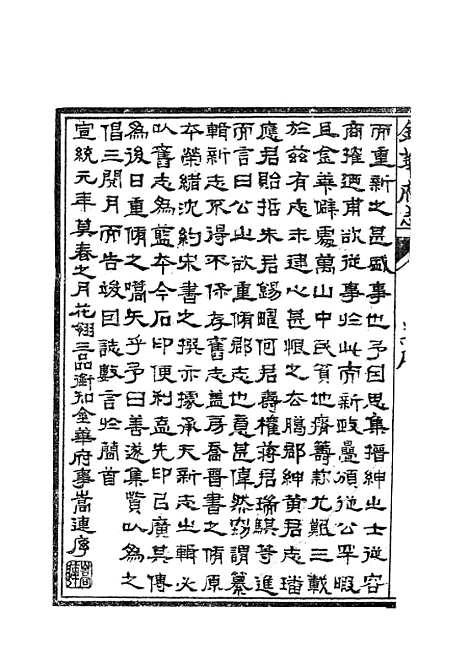 而重新之甚盛事也予因思集搢紳之士從容
商搉廼肅欲從事於此而新政疊頒從公罕暇
且金華僻處萬山中民貧地瘠籌款尤難三載
於茲有志未逮心甚恨之今太騰郡紳黃君志璠
應君貽哲朱君錫曜何君壽權蔣君瑞騏等進
而言曰公之欲重脩郡志也意甚偉然竊謂纂
輯新志不得不保存舊志蓋房喬晉書之脩原
本榮緒沈約宋書之撰亦據承天新志之輯必
以舊志為藍本今石印便利盍先印已廣其傳
為後日重脩之嚆矢乎予曰善遂集貲以為之
倡三閱月而告竣因誌數言於簡首
宣統元年莫春之月花翎三品銜知金華府事嵩連序
金華府志